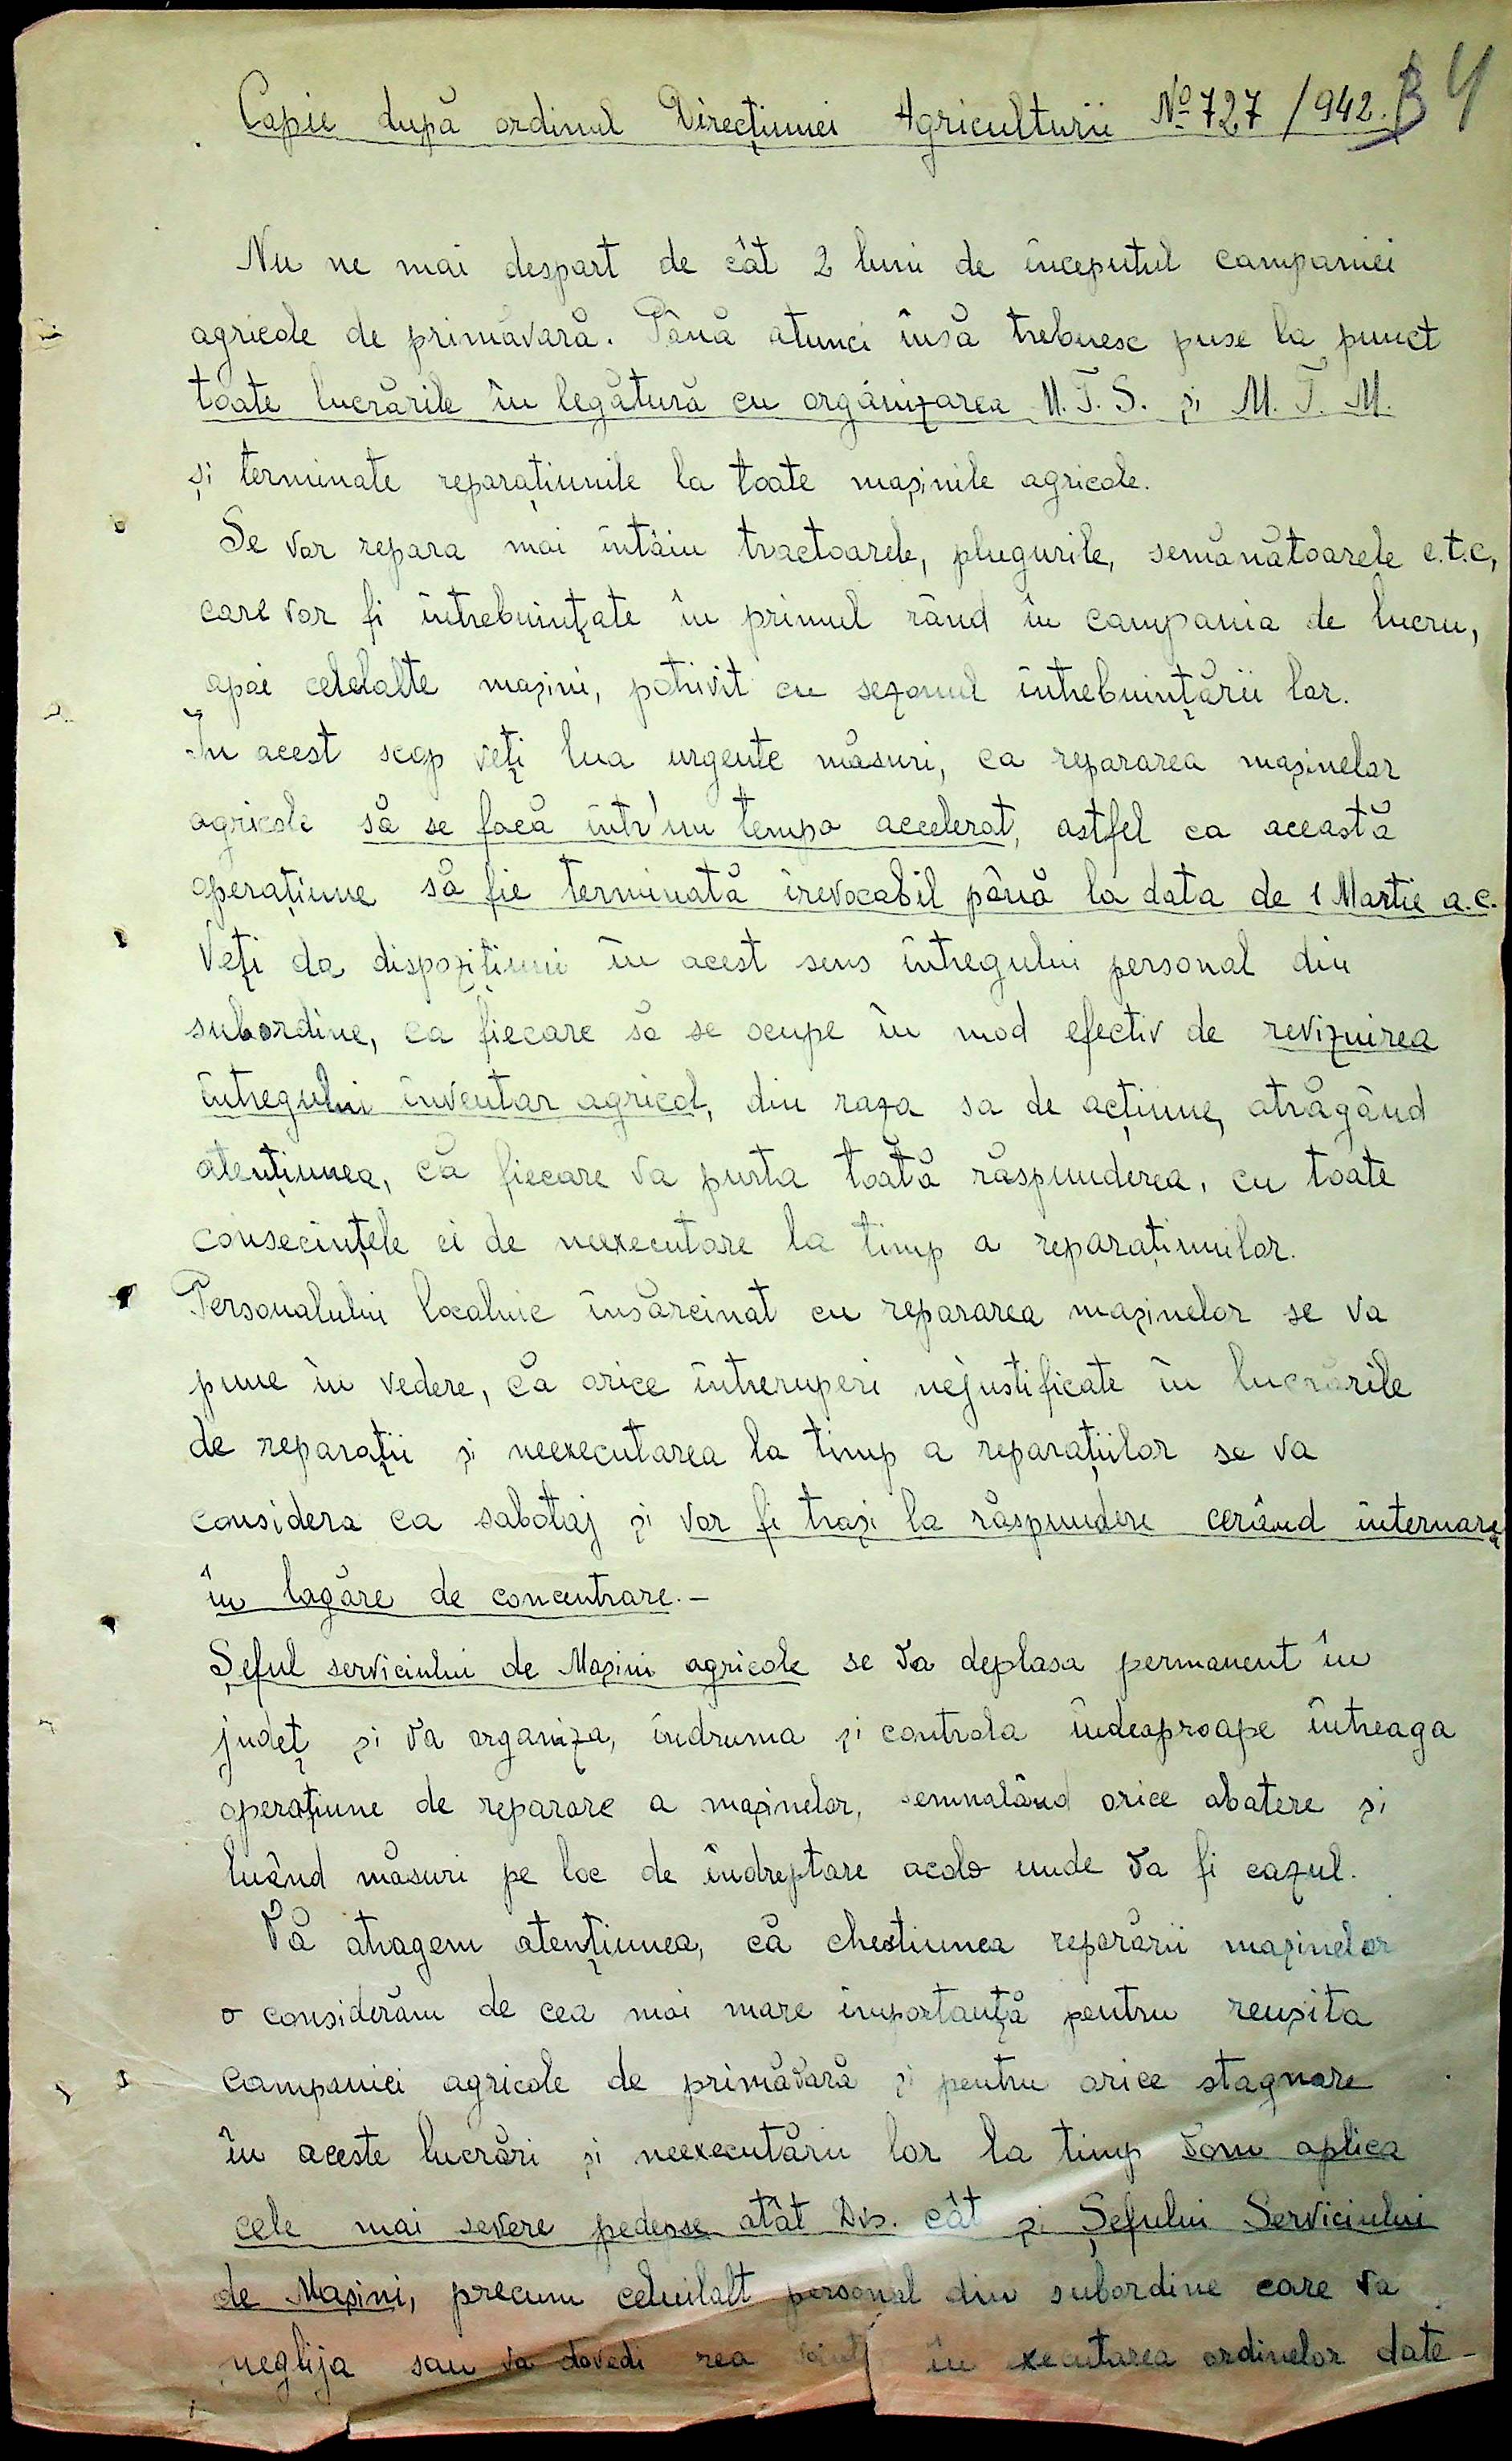 Copie după ordinul Direcțiunei Agriculturii № 727 / 942.
Nu ne mai despart de cât 2 luni de începutul campaniei
agricole de primăvară. Până atunci însă trebuesc puse la punct
toate lucrările în legătură cu organizarea M.T.S. și M.T.M.
și terminate reparațiunile la toate mașinile agricole.
Se vor repara mai întâiu tractoarele, plugurile, semănătoarele e.t.c,
care vor fi întrebuințate în primul rând în campania de lucru,
apoi celelalte mașini, potrivit cu sezonul întrebuințării lor.
In acest scop veți lua urgente măsuri, ca repararea mașinelor
agricole să se facă într'un tempo accelerat, astfel ca această
operațiune să fie terminată irevocabil până la data de 1 Martie a.c.
Veți da dispozițiuni în acest sens întregului personal din
subordine, ca fiecare să se ocupe în mod efectiv de revizuirea
întregului inventar agricol, din raza sa de acțiune, atrăgând
atențiunea, că fiecare va purta toată răspunderea, cu toate
consecințele ei de neexecutare la timp a reparațiunilor.
Personalului localnic însărcinat cu repararea mașinelor se va
pune în vedere, că orice întreruperi nejustificate în lucrările
de reparații și neexecutarea la timp a reparațiilor se va
considera ca sabotaj și vor fi trași la răspundere cerând internare
în lagăre de concentrare.-
Șeful serviciului de Mașini agricole se va deplasa permanent în
județ și va organiza, îndruma și controla îndeaproape întreaga
operațiune de reparare a mașinelor, semnalând orice abatere și
luând măsuri pe loc de îndreptare acolo unde va fi cazul.
Vă atragem atențiunea, că chestiunea reparării mașinelor
o considerăm de cea mai mare importanță pentru reușita
campaniei agricole de primăvară și pentru orice stagnare
în aceste lucrări și neexecutării lor la timp vom aplica
cele mai severe pedepse atât Dvs. cât și Șefului Serviciului
de Mașini, precum celuilalt personal din subordine care va
neglija sau va dovedi rea voință în executarea ordinelor date-